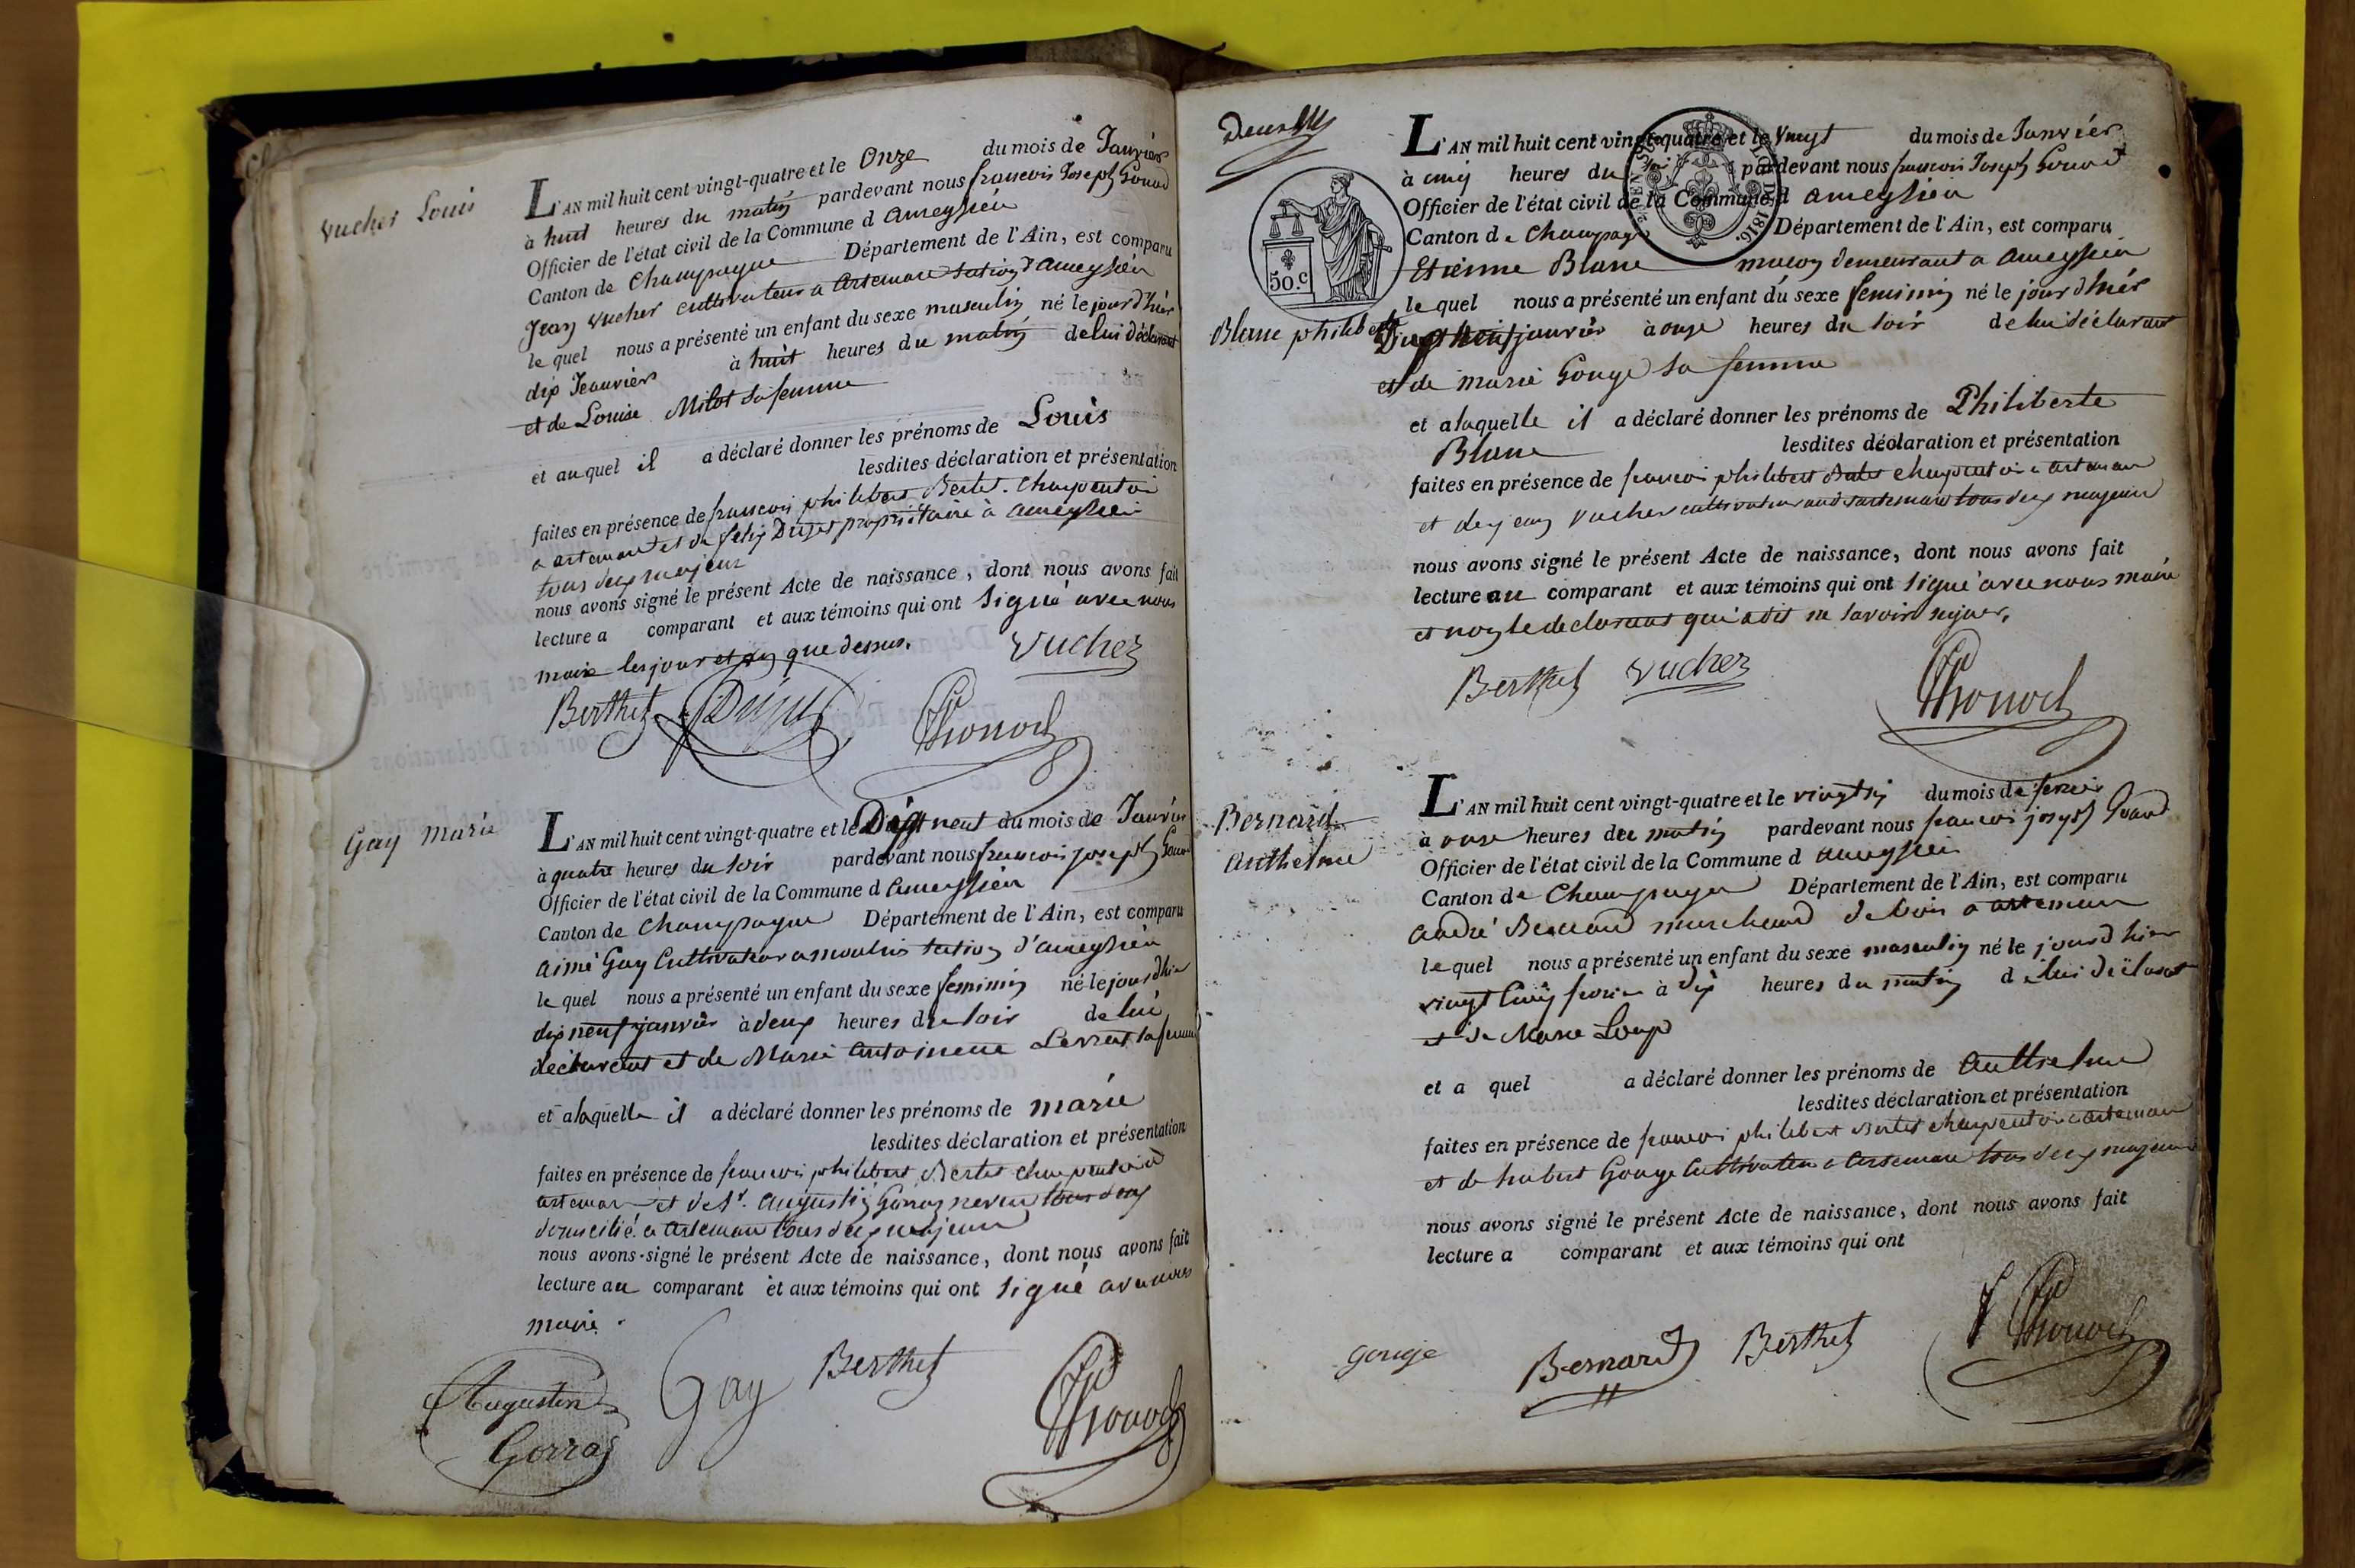 vucher Louis
L'AN mil huit cent vingt-quatre et le Onze du mois de Janvier
à huit heures du matin pardevant nous francois Joseph Gonod
Officier de l'état civil de la Commune d ameyzieu
Canton de Champagne Département de l'Ain, est comparu
Jean vucher cultivateur a Artemare Section d'ameyzieu
le quel nous a présenté un enfant du sexe masculin né le jour d'hier
dix Jeanvier à huit heures du matin de lui déclarant
et de Louise Milot sa femme
et au quel il a déclaré donner les prénoms de Louis
lesdites déclaration et présentation
faites en présence de francois philibert Bertet charpentier
a artemare et de felix Dujet propriétaire à ameyzieu
tous deux majeur
nous avons signé le présent Acte de naissance, dont nous avons fait
lecture a comparant et aux témoins qui ont signé avec nous
maire les jour et an que dessus.
vucher
Berthet Dujet Gonod
Gay marie
L'AN mil huit cent vingt-quatre et le Dix neuf du mois de Janvier
à quatre heures du soir pardevant nous francois joseph Gonod
Officier de l'état civil de la Commune d ameyzieu
Canton de champagne Département de l'Ain, est comparu
aimé Gay Cultivateur a moulins section d'ameyzieu
le quel nous a présenté un enfant du sexe feminin né le jour d'hier
dix neuf janvier à deux heures du soir de lui
déclarent et de Marie antoinette sa femme
et a laquelle il a déclaré donner les prénoms de marie
lesdites déclaration et présentation
faites en présence de francois philibert Bertet charpentier a
artemare et de Sr. augustin tous deux
domicilié a artemare tous deux majeur
nous avons signé le présent Acte de naissance, dont nous avons fait
lecture au comparant et aux témoins qui ont signé avec nous
maire.
Augustin Gay Berthet Gonod
Gorraz
Deux
50.C
L'AN mil huit cent vingt-quatre et le vingt du mois de Janvier
à cinq heures du pardevant nous francois Joseph Gonod
Officier de l'état civil de la Commune d ameyzieu
Canton de Champagne Département de l'Ain, est comparu
Etienne Blanc maçon demeurant a ameyzieu
le quel nous a présenté un enfant du sexe feminin né le jour d'hier
Blanc philiberte
Dix neuf janvier à onze heures du soir de lui déclarant
et de marie Gouge sa femme
et a laquelle il a déclaré donner les prénoms de Philiberte
Blanc lesdites déclaration et présentation
faites en présence de francois philibert Bertet charpentier a artemare
et de jean vucher cultivateur audit artemare tous deux majeur
nous avons signé le présent Acte de naissance, dont nous avons fait
lecture au comparant et aux témoins qui ont signé avec nous maire
et non le declarant qui a dit ne savoir signer.
Berthet vucher Gonod
Bernard
anthelme
L'AN mil huit cent vingt-quatre et le vingt six du mois de fevrier
à onze heures du matin pardevant nous francois joseph Gonod
Officier de l'état civil de la Commune d ameyzieu
Canton de Champagne Département de l'Ain, est comparu
andré Bernard marchand de bois a artemare
le quel nous a présenté un enfant du sexe masculin né le jour d'hier
vingt cinq fevrier à dix heures du matin de lui déclarant
et de Marie Loup
et a quel a déclaré donner les prénoms de anthelme
lesdites déclaration et présentation
faites en présence de francois philibert Bertet charpentier a artemare
et de hubert Gouge Cultivateur a artemare tous deux majeur
nous avons signé le présent Acte de naissance, dont nous avons fait
lecture a comparant et aux témoins qui ont
gouge Bernard Berthet Gonod